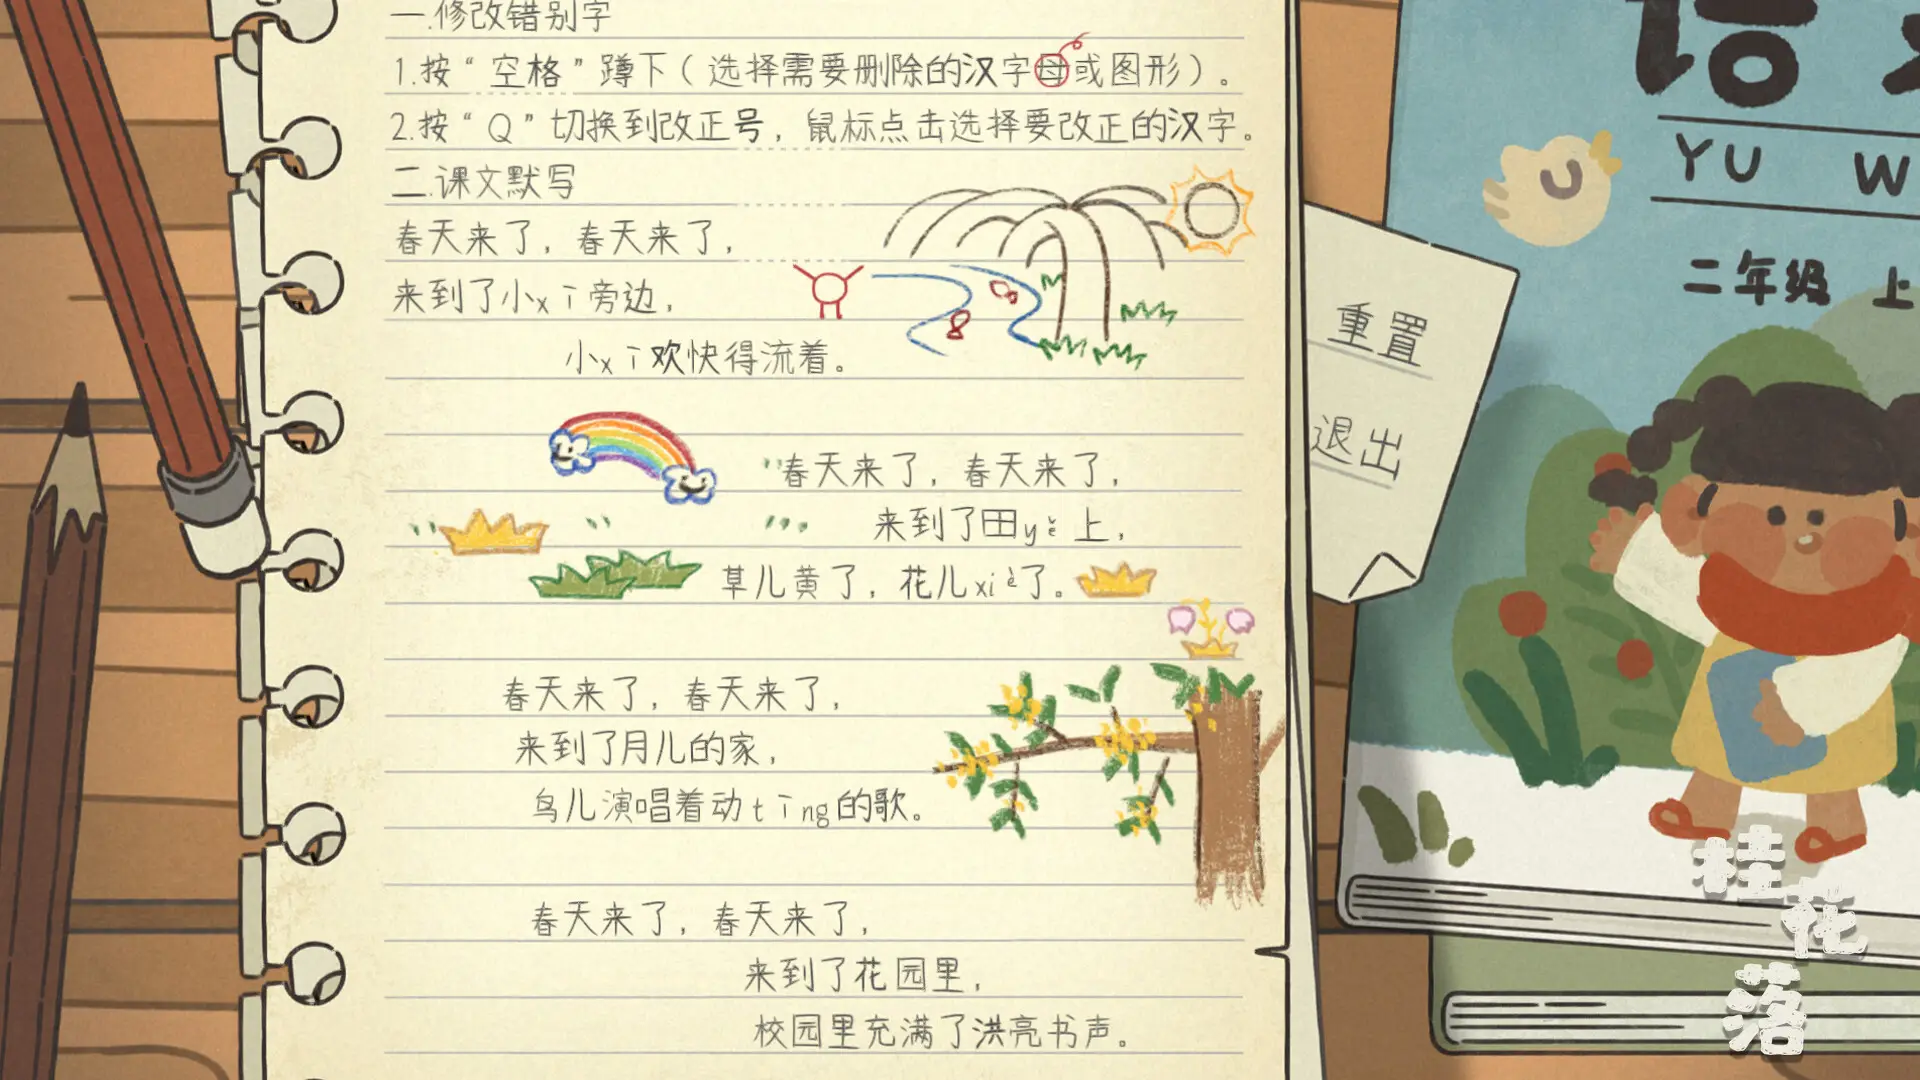 一.修改错别字
1.按“空格”蹲下（选择需要删除的汉字母或图形）。
2.按“Q”切换到改正号，鼠标点击选择要改正的汉字。
二.课文默写
春天来了，春天来了，
来到了小xī旁边，
小xī欢快得流着。
春天来了，春天来了，
来到了田yě上，
草儿黄了，花儿xiè了。
春天来了，春天来了，
来到了月儿的家，
鸟儿演唱着动tīng的歌。
春天来了，春天来了，
来到了花园里，
校园里充满了洪亮书声。
重置
退出
YU W
二年级 上
桂花落